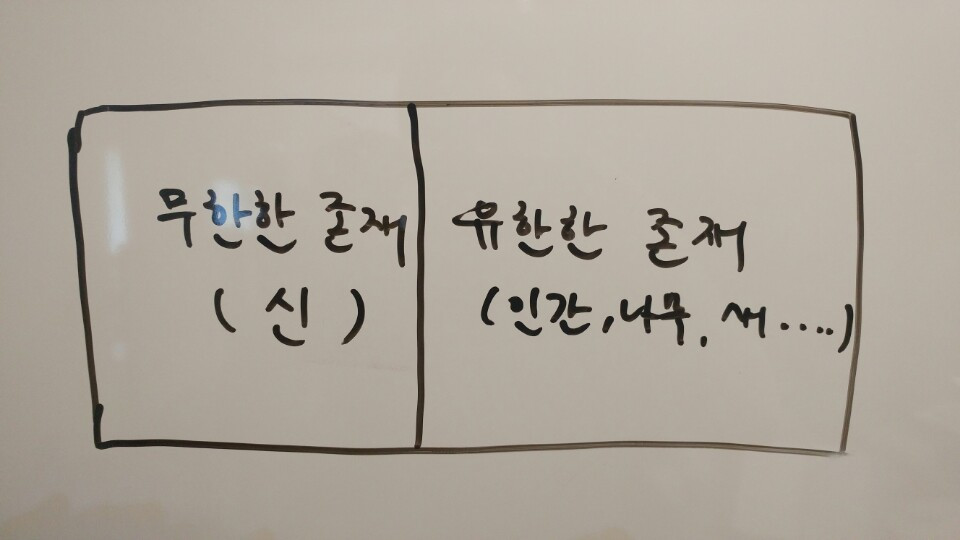 무한한 존재
(신)
유한한 존재
(인간, 나무, 새....)